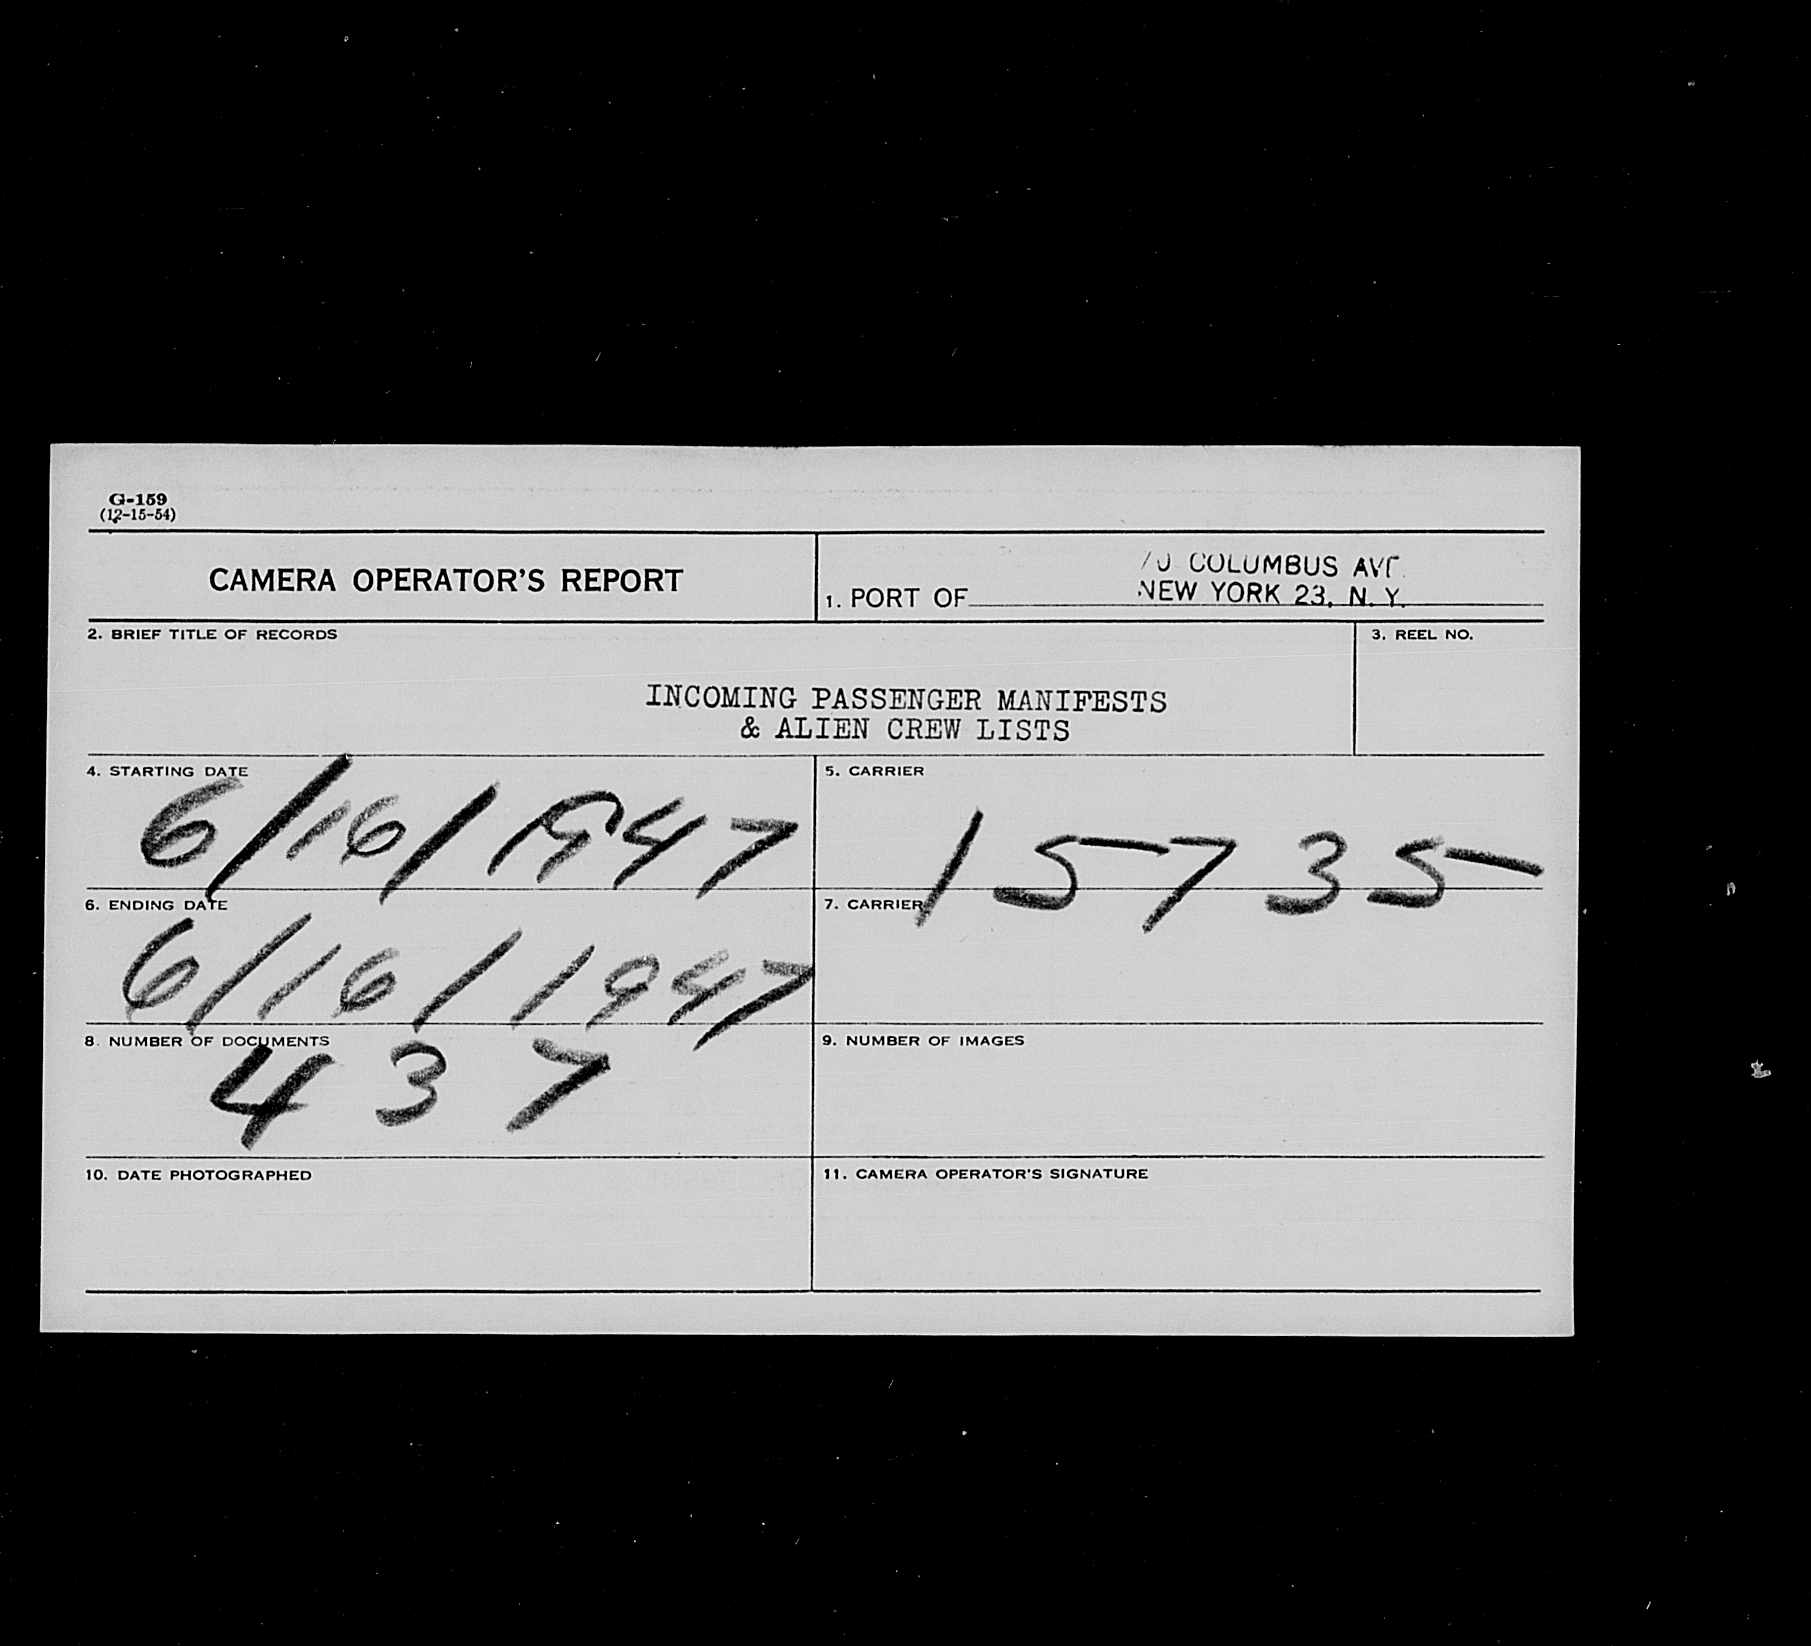 G-159
(12-15-54)
CAMERA OPERATOR'S REPORT
70 COLUMBUS AVE.
1. PORT OF NEW YORK 23, N. Y.
2. BRIEF TITLE OF RECORDS
3. REEL NO.
INCOMING PASSENGER MANIFESTS
& ALIEN CREW LISTS
4. STARTING DATE
6/16/1947
5. CARRIER
15735
6. ENDING DATE
6/16/1947
7. CARRIER
8. NUMBER OF DOCUMENTS
437
9. NUMBER OF IMAGES
10. DATE PHOTOGRAPHED
11. CAMERA OPERATOR'S SIGNATURE